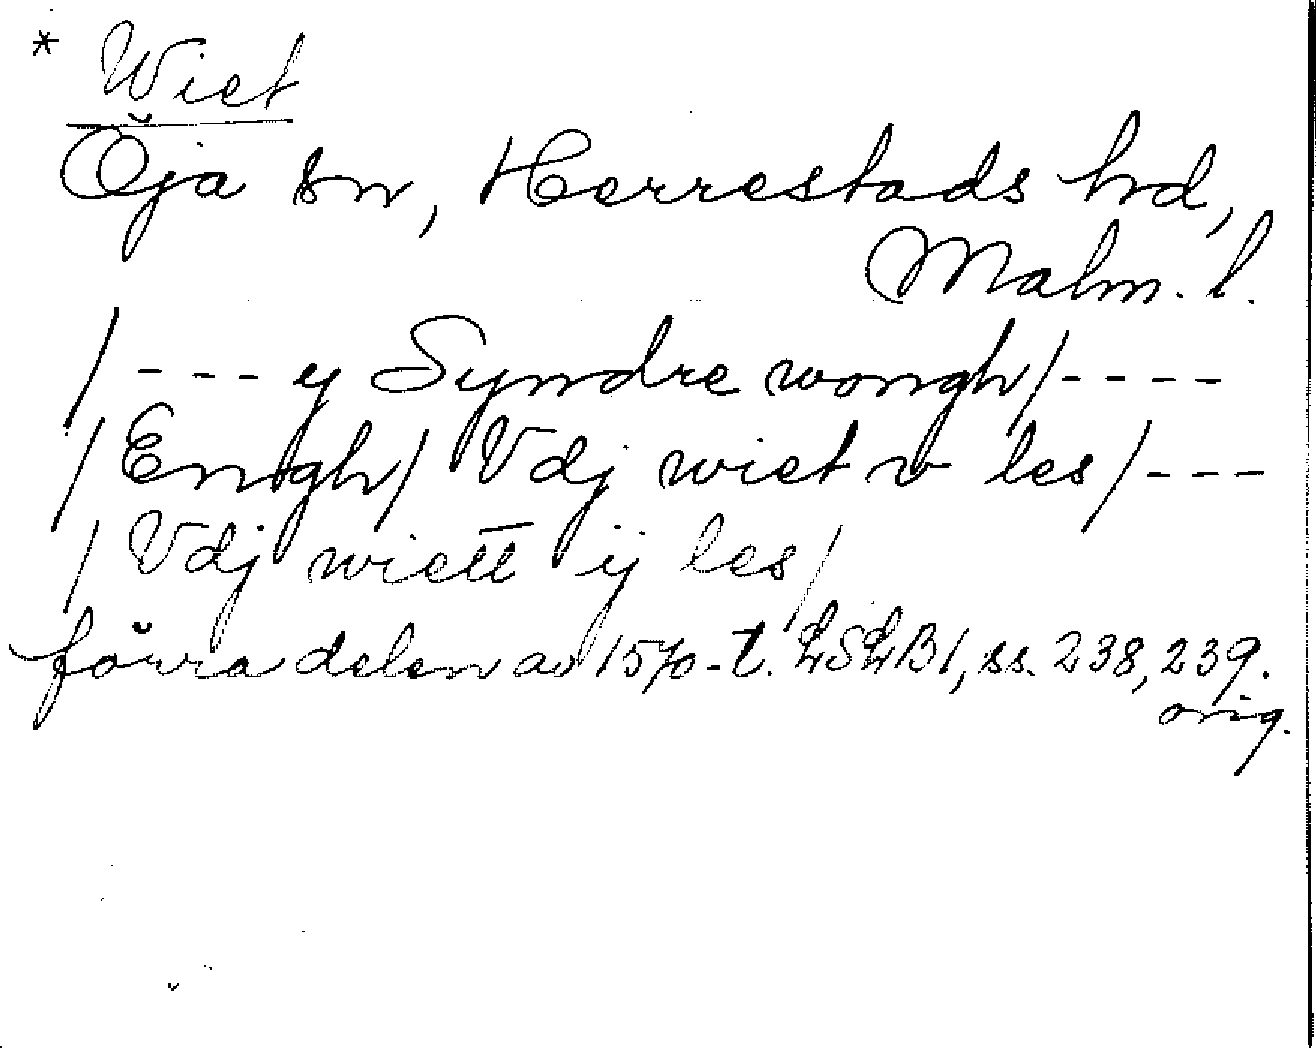 * Wiet
Öja sn, Herrestads hd,
Malm. l.
/ - - - y Syndre wongh/ - - - -
/ Engh/ Vdj wiet v les/ - - -
/ Vdj wiett ij les/
förra delen av 1570-t. LSLB1, ss. 238, 239.
orig.